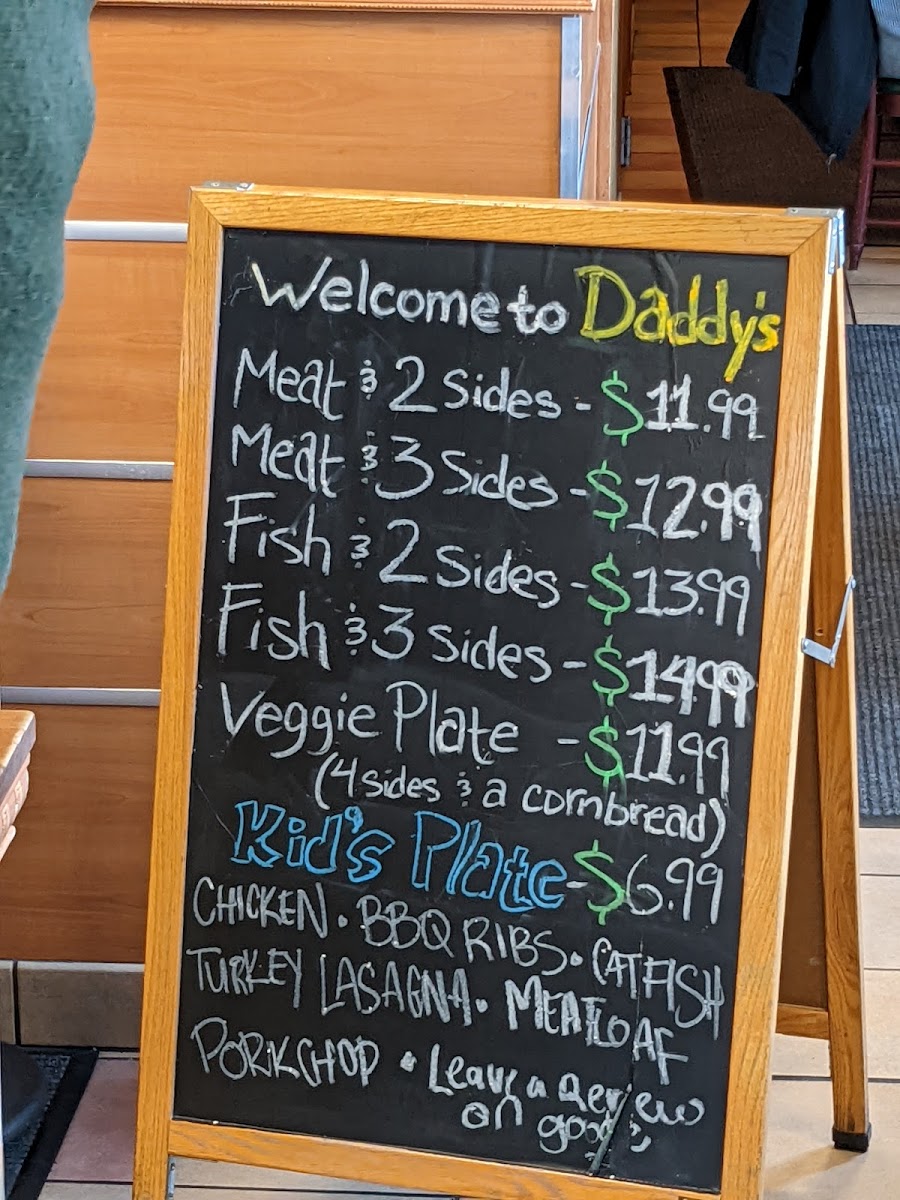 Welcome to Daddy's
Meat & 2 Sides - $11.99
Meat & 3 Sides - $12.99
Fish & 2 Sides - $13.99
Fish & 3 Sides - $14.99
Veggie Plate - $11.99
(4 sides & a cornbread)
Kid's Plate - $6.99
CHICKEN • BBQ RIBS • CATFISH
TURKEY LASAGNA • MEATLOAF
PORKCHOP • Leave a Review
on